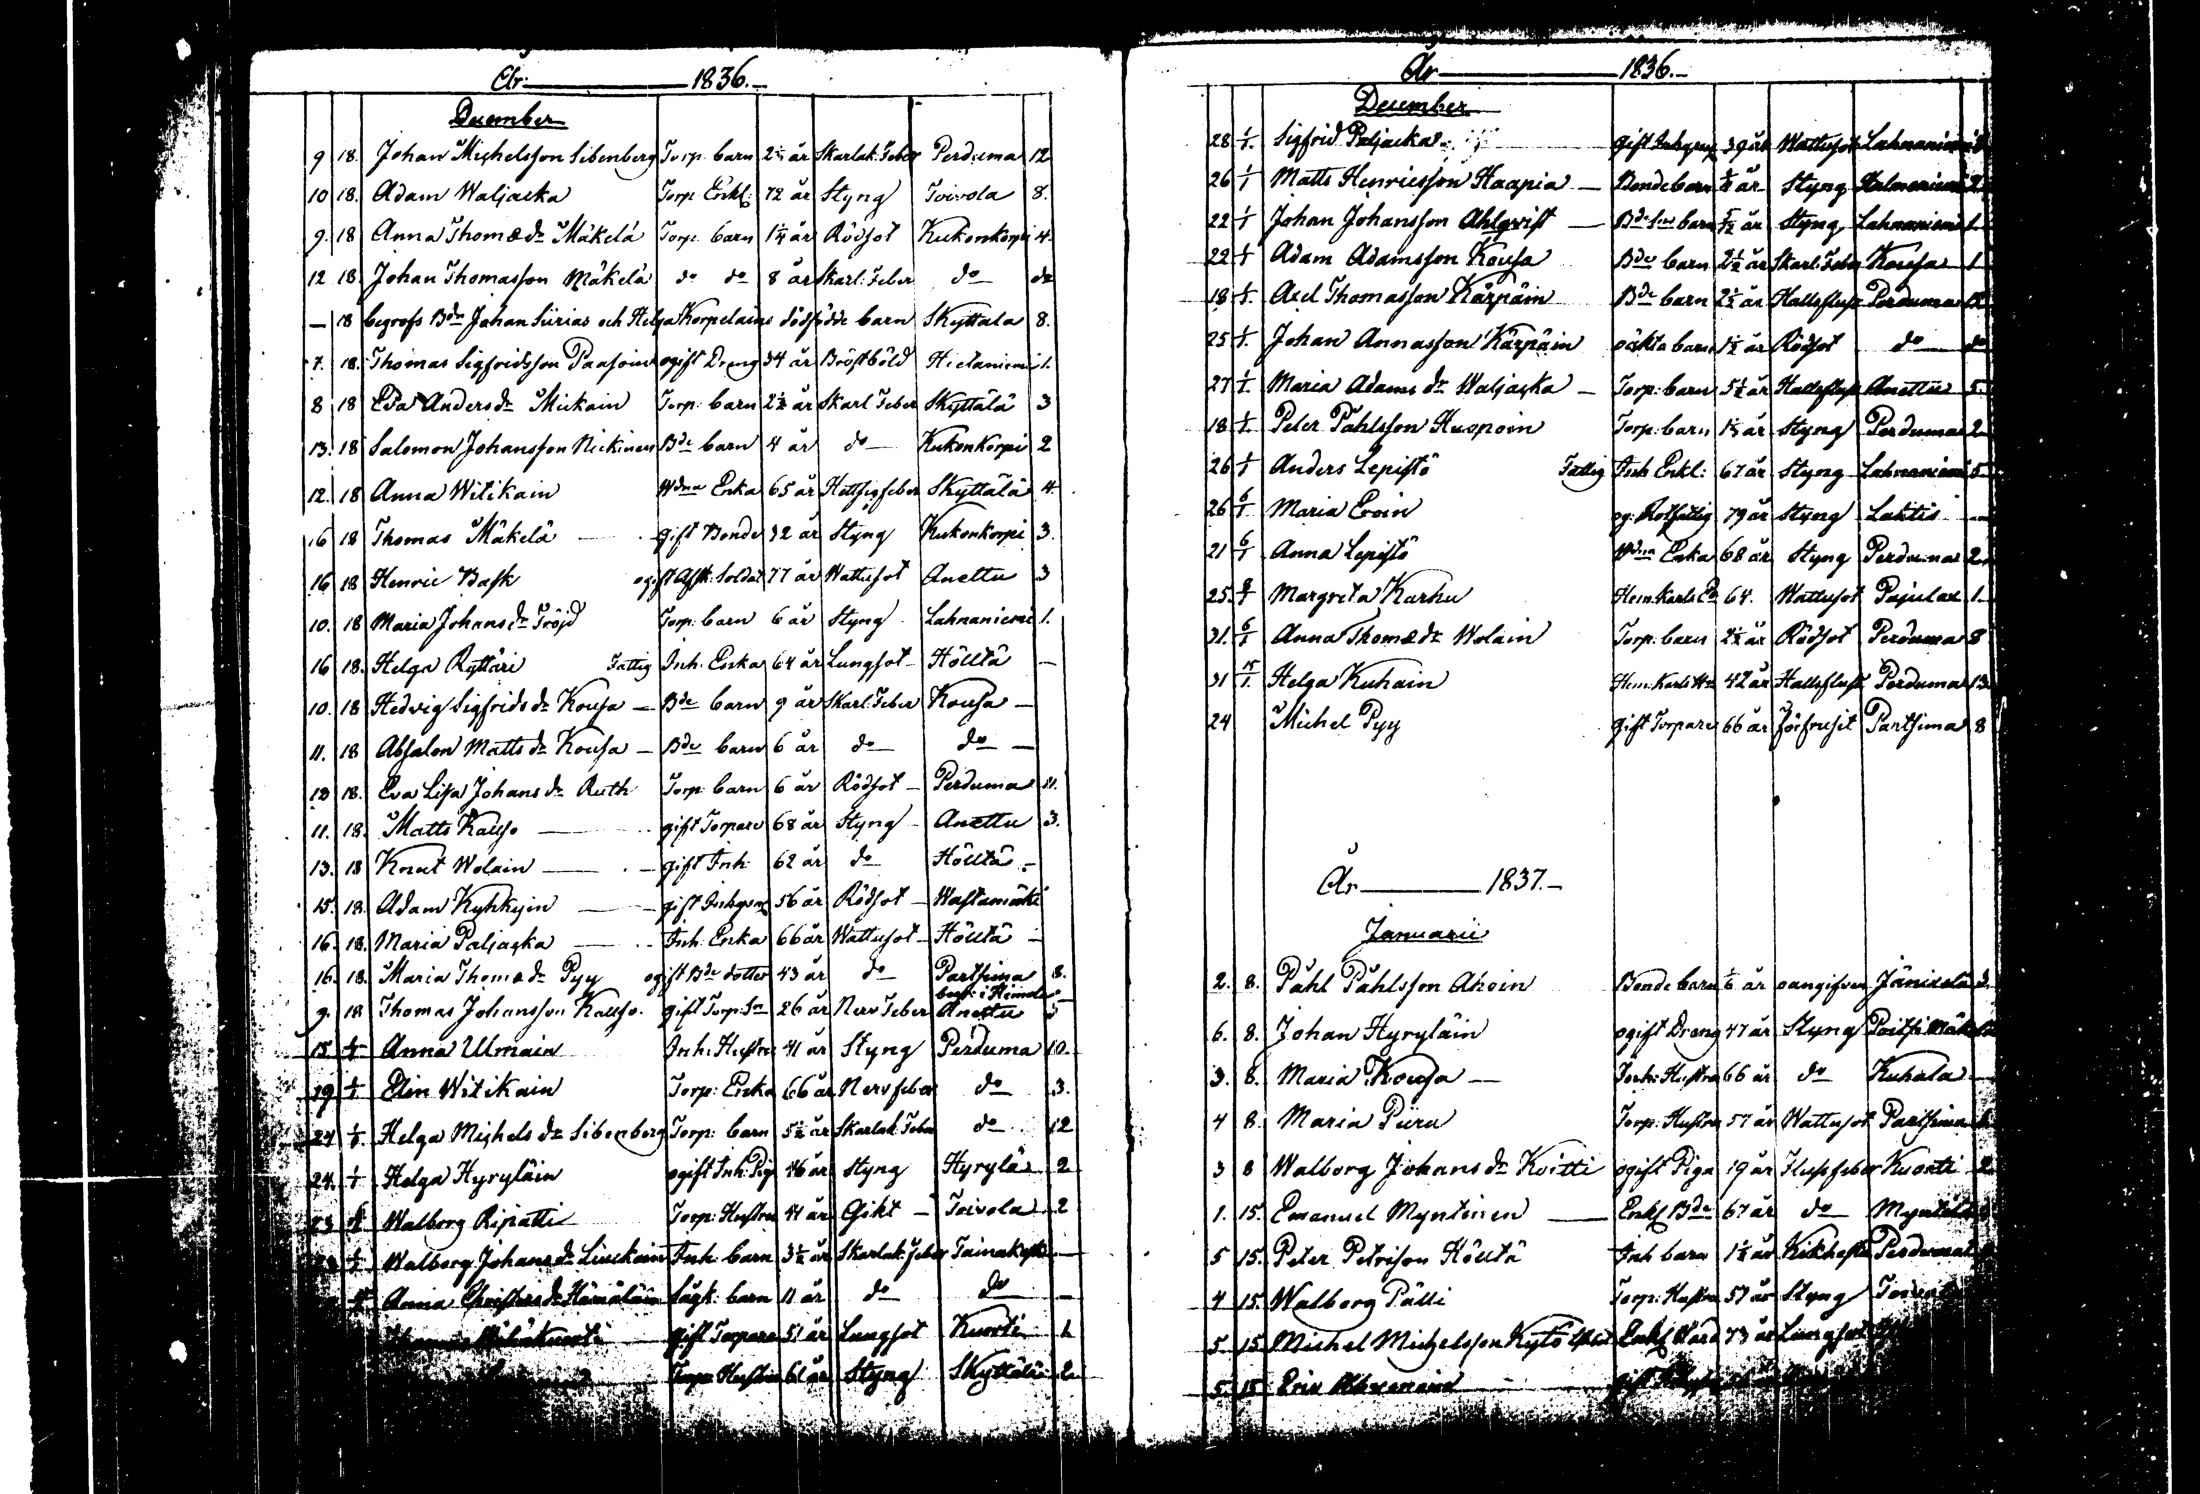 År 1836.
December
9 18. Johan Michelsson Sibenberg Torp. barn 2½ år Skarlak. Feber Perduma 12
10 18. Adam Waljacka Torp. Enkl. 72 år Styng Toivola 8.
9. 18 Anna Thomæ dr Mäkelä Torp. barn 1¼ år Rödsot Kukonkorpi 4.
12 18. Johan Thomasson Mäkelä do do 8 år Skarl. Feber do do
— 18 begrofs Bdn Johan Siirias och Helga Korpelains dödfödde barn Skyttala 8.
7. 18. Thomas Sigfridsson Paasoin ogift Dreng 34 år Bröstböld Hietaniemi 1.
8 18 Eva Anders dr Mickain Torp. barn 2½ år Skarl. Feber Skyttälä 3
13. 18 Salomon Johansson Nickinen Bde barn 4 år do Kukonkorpi 2
12. 18 Anna Witikain Wdna Enka 65 år Hettsigfeber Skyttälä 4.
16 18 Thomas Mäkelä — gift Bonde 32 år Styng Kukonkorpi 3.
16 18 Henric Bask ogift Afsk. Soldat 77 år Wattusot Anettu 3
10. 18 Maria Johans dr Tröjd Torp. barn 6 år Styng Lahnaniemi 1.
16 18. Helga Ryttäri Fattig Inh. Enka 64 år Lungsot Hölttä —
10. 18 Hedvig Sigfrids dr Kousa — Bde barn 9 år Skarl. Feber Kousa —
11. 18 Absalon Matts dr Kousa — Bde barn 6 år do do —
12 18. Eva Lisa Johans dr Ruth Torp. barn 6 år Rödsot Perduma 11.
11. 18. Matts Kauso — gift Torpare 68 år Styng Anettu 3.
13. 18 Knut Wolain — gift Inh. 62 år do Hölttä —
15. 18. Adam Kyhkyin — gift Inhysn 56 år Rödsot Wastamäki
16. 18. Maria Paljacka — Inh. Enka 66 år Wattusot Hölttä —
16. 18. Maria Thomæ dr Pyy ogift Bde dotter 43 år do Partsima 8.
begr. i Heinola
9. 18. Thomas Johansson Kauso. gift Torp. Sn 26 år Nerv Feber Anettu 5
15 1/1 Anna Ulmain Inh. Hustru 41 år Styng Perduma 10.
19 1/1 Elin Witikain Torp. Enka 66 år Nervfeber do 3.
24 1/1 Helga Michels dr Sibenberg Torp. barn 5½ år Skarlak. Feber do 12
24. 1/1 Helga Hyryläin ogift Inh. Pig 46 år Styng Hyrylä 2
23 Walborg Ripatti Torp. Hustru 41 år Gikt — Toivola 2
Walborg Johans dr Liuckain Inh. barn 3½ år Skarlak. Feber —
Anna Christers dr Hämäläin barn 11 år do do —
gift Torpare 51 år Lungsot Kuorti 1.
Torp. Hustru 61 år Styng Skyttälä 2
År 1836.
December
28 1/1. Sigfrid Paljacka gift Inhysn 39 år Wattusot Lahnaniemi
26 1/1 Matts Henricsson Haapia — Bondebarn år Styng 2
22 1/1 Johan Johansson Ahlqvist — barn år Styng Lahnaniemi 1.
22 1/1 Adam Adamsson Kousa Bde barn 2½ år Skarl. Feber Kousa 1
18 1/1. Axel Thomasson Kärpäin Bde barn 2½ år Hallsfluss Perduma 12
25 1/1. Johan Annasson Kärpäin oäkta barn 1½ år Rödsot do do
27 1/1. Maria Adams dr Waljacka — Torp. barn 5½ år Hallsfluss Anettu 5.
18 1/1. Peter Påhlsson Huopoin Torp. barn år Styng Perduma 2
26 1/1 Anders Lepistö Fattig Inh. Enkl. 67 år Styng Lahnaniemi 5
26 6/1 Maria Eroin og. Rotfattig 79 år Styng Laktis —
21 6/1 Anna Lepistö Wdna Enka 68 år Styng Perduma 2.
25. 8/1 Margreta Karhu Hem. Karls 64. Wattusot Pajulax 1.
31. 6/1 Anna Thomæ dr Wolain Torp. barn 2½ år Rödsot Perduma 8
31 15/1. Helga Kuhain Hem. Karls 42 år Hallsfluss Perduma 13.
24 Michel Pyy gift Torpare 66 år förfrusit Partsima 8
År 1837.
Januarii
2. 8. Påhl Påhlsson Ahoin Bonde barn år oangifven Jänicelä 3.
6. 8. Johan Hyryläin ogift Dreng 47 år Styng
3. 8. Maria Kousa — Inh. Hustru 66 år do Kuhala —
4 8. Maria Piiru Torp. Hustru 57 år Wattusot Partsima
3 8 Walborg Johans dr Koitti ogift Piga 19 år Flussfeber Kuorti 2.
1. 15. Emanuel Myntinen — Enkl. Bde 67 år do
5 15. Peter Petrisson Hölttä Inh. barn 1½ år Kikhosta Perduma
4 15. Walborg Pälli Torp. Hustru 57 år Styng
5. 15 Michel Michelsson Kytö 73 år Lungsot
5. 15 Eric gift